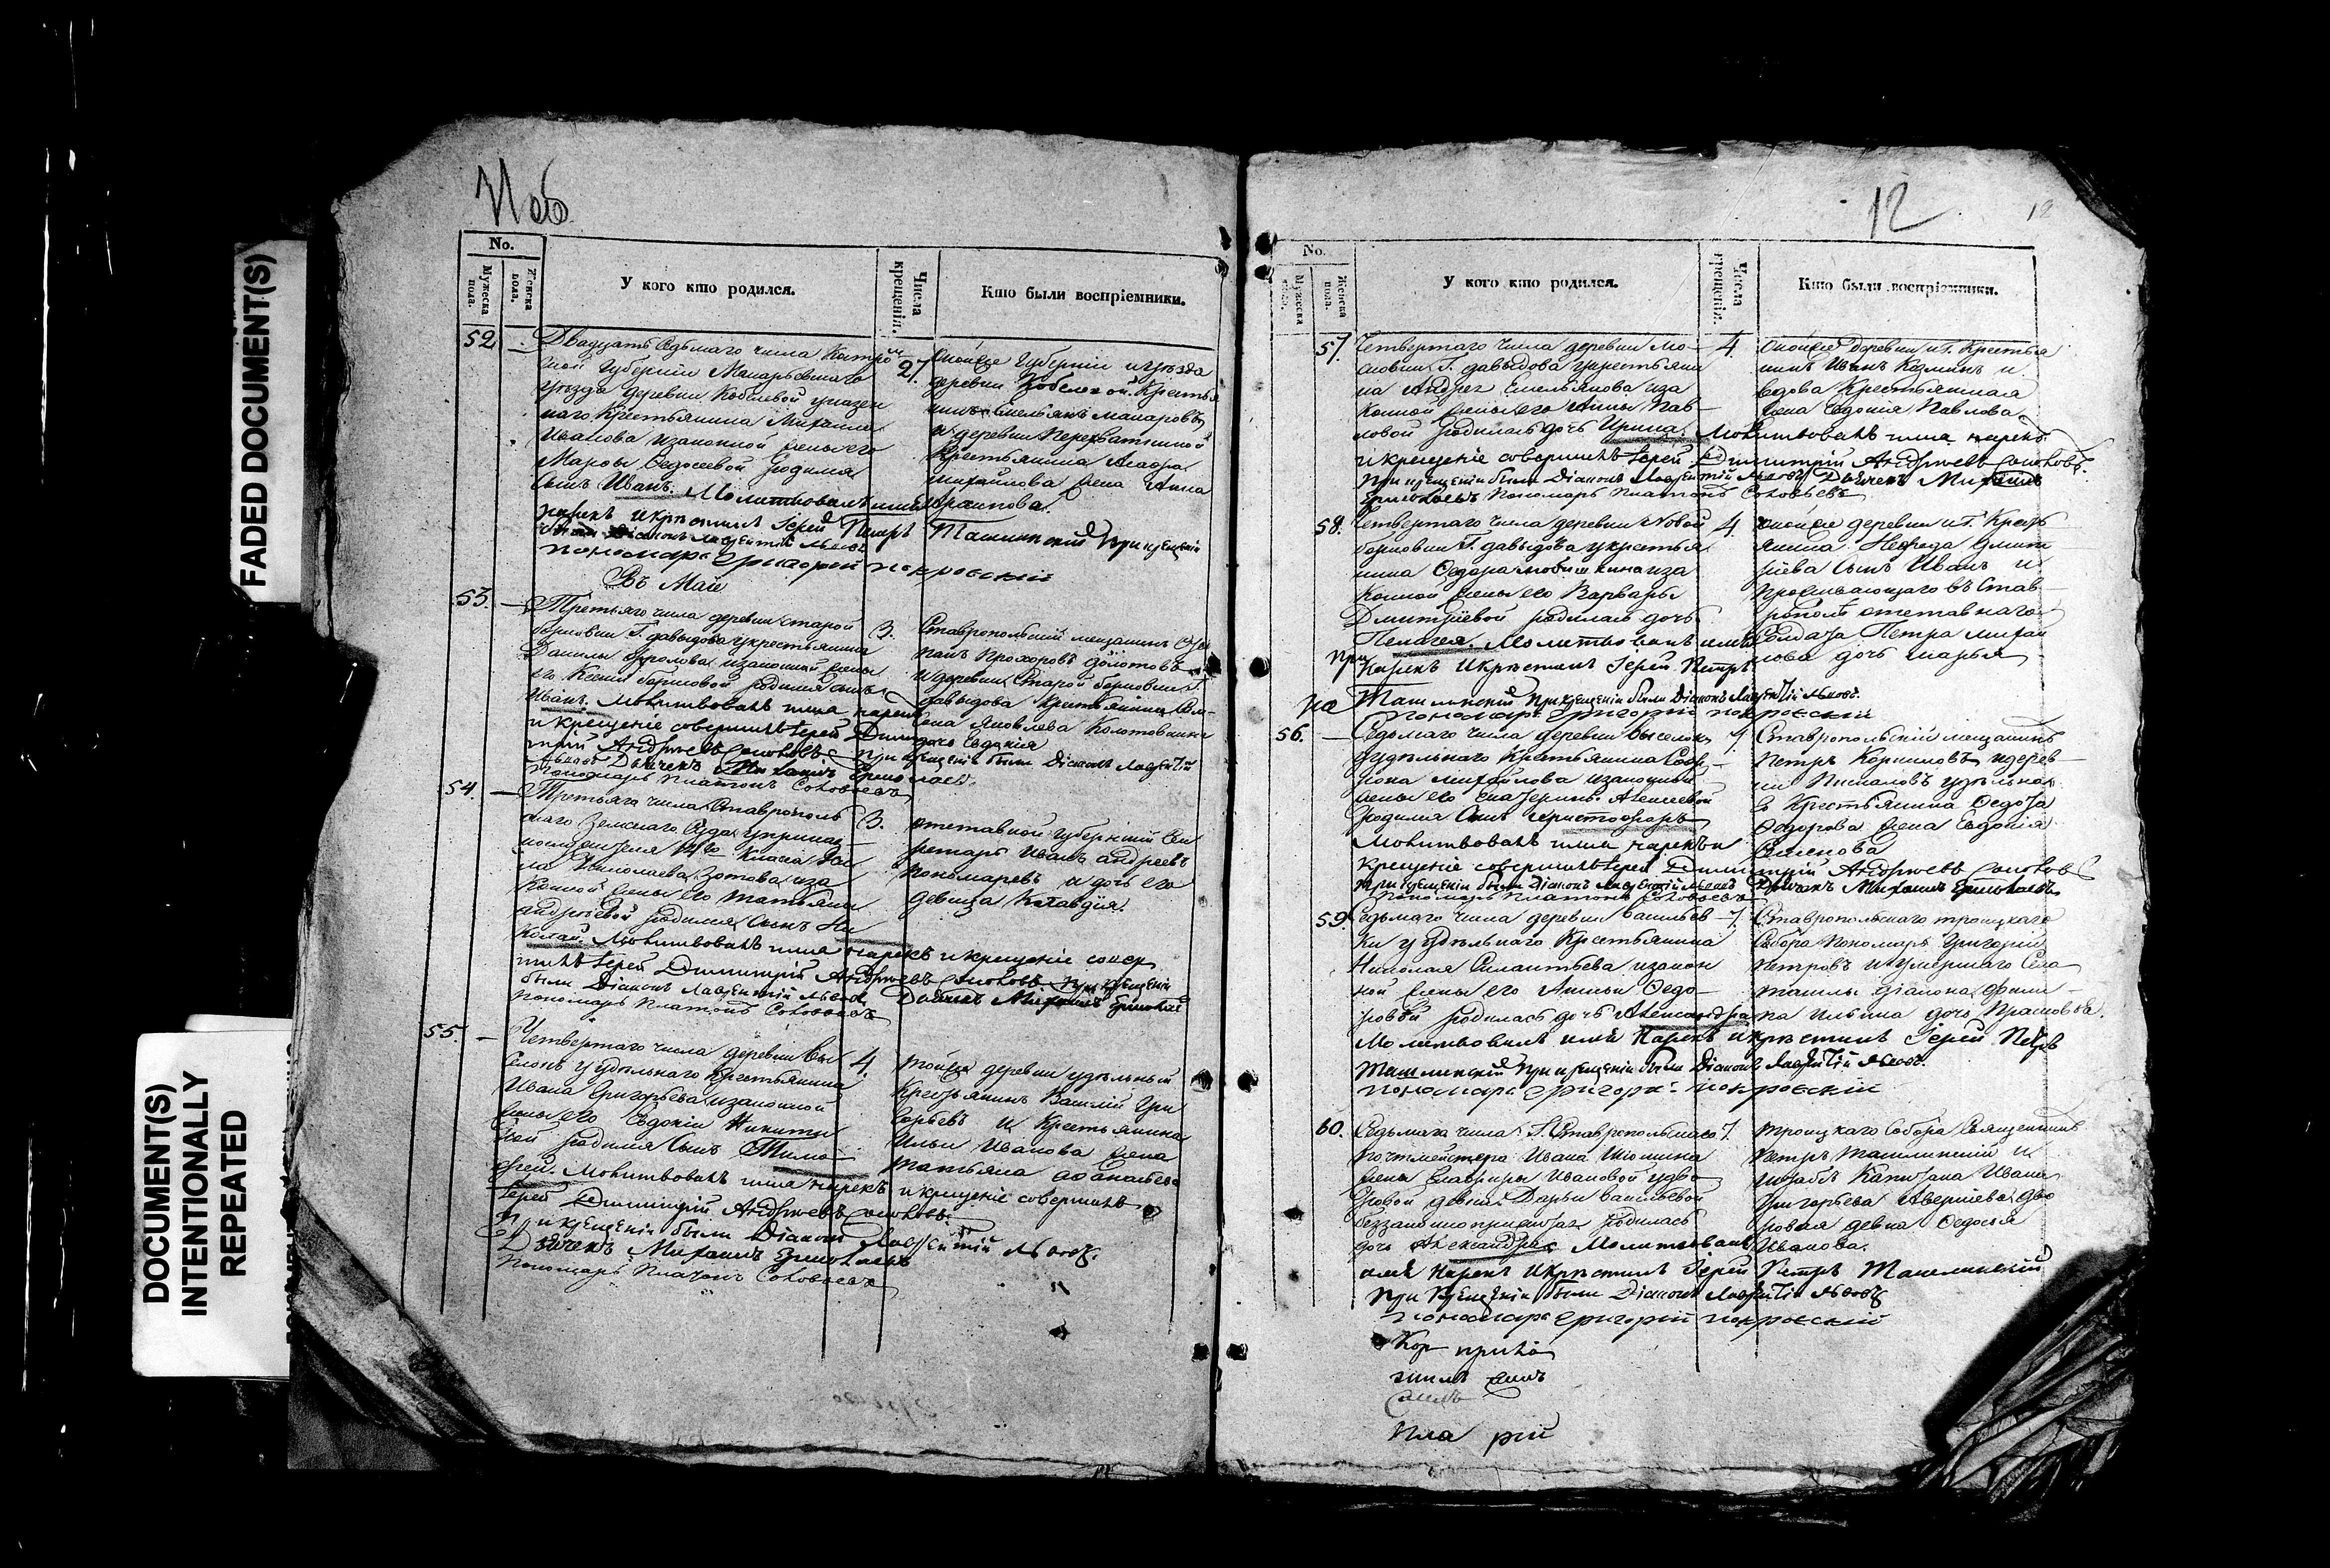 FADED DOCUMENT(S)
DOCUMENT(S)
INTENTIONALLY
REPEATED
11 об
No.
Мужеска пола.
Женска пола.
У кого кто родился.
Числа крещенія.
Кто были воспріемники.
52
Двадцать седьмаго числа Костром
ской Губерніи Макарьевскаго
уѣзда деревни Кобылевой у казен
наго крестьянина Михаила
Иванова изаконной жены его
Марѳы Ѳедосеевой родился
сынъ Иванъ. Молитвовалъ имя
нарекъ и крестилъ Іерей Петръ Ташлинскій при крещеніи
были Діаконъ Лаврентій Львовъ
пономарь Григорій покровскій
27.
оной же Губерніи и уѣзда
деревни Кобелевой крестья
нинъ Емельянъ Макаровъ
и деревни
крестьянина
михайлова жена Анна
Въ Маіе
53.
Третьяго числа деревни старой
борковки Г. давыдова у крестьянина
Данилы Фролова изаконной жены
его Ксеніи борисовой родился сынъ
Иванъ. Молитвовалъ имя нарекъ
и крещеніе совершилъ Іерей Дими
трій Андреевъ Соколовъ. При крещеніи были Діаконъ Лаврентій
Львовъ Дьячекъ Михаилъ Ермолаевъ
Пономарь Платонъ Соловьевъ
3.
Ставропольскій мещанинъ Сте
панъ Прохоровъ Золотовъ
и деревни Старой борковки Г.
давыдова крестьянина Сем
ена Яковлева
дочь Евдокія
54.
Третьяго числа Ставрополь
скаго Земскаго Суда у
14го Класса
ла Николаева Зотова иза
конной жены его Татьяны
андреевой родился сынъ Ни
колай. Молитвовалъ имя нарекъ и крещеніе совер
шилъ Іерей Димитрій Андреевъ Соколовъ. При крещеніи
были Діаконъ Лаврентій Львовъ, Дьячекъ Михаилъ Ермолаевъ
Пономарь Платонъ Соловьевъ
3.
отставной губернскій Сек
ретарь Иванъ андреевъ
пономаревъ и дочь его
девица Клавдія.
55.
Четвертаго числа деревни Вы
селокъ у удѣльнаго крестьянина
Ивана Григорьева изаконной
жены его Евдокіи Никити
ной родился сынъ Тимо
фей. Молитвовалъ имя нарекъ и крещеніе совершилъ
Іерей Димитрій Андреевъ Соколовъ.
При крещеніи были Діаконъ Лаврентій Львовъ.
Дьячекъ Михаилъ Ермолаевъ
Пономарь Платонъ Соловьевъ
4.
той же деревни удѣльный
Крестьянинъ Василій Гри
горьевъ и Крестьянина
Ильи Иванова жена
Татьяна
12
No.
Мужеска пола.
Женска пола.
У кого кто родился.
Числа крещенія.
Кто были воспріемники.
57.
Четвертаго числа деревни Мо
сковки Г. давыдова у крестьяни
на Андрея Емельянова иза
конной жены его Анны Пав
ловой родилась дочь Ирина. Молитвовалъ имя нарекъ
и крещеніе совершилъ Іерей Димитрій Андреевъ Соколовъ.
При крещеніи были Діаконъ Лаврентій Львовъ Дьячекъ Михаилъ
Ермолаевъ Пономарь Платонъ Соловьевъ
4.
оной же деревни и Г. Крестья
нинъ Иванъ Козминъ и
вдова Крестьянская
жена Евдокія Павлова
58.
Четвертаго числа деревни Новой
борковки Г. давыдова у крестья
нина Ѳедора изa
конной жены его Варвары
Дмитріевой родилась дочь
Пелагея. Молитвовалъ имя
нарекъ и крестилъ Іерей Петръ
Ташлинскій при крещеніи были Діаконъ Лаврентій Львовъ.
пономарь Григорій покровскій
4.
оной же деревни и Г. Кресть
янина Дмит
ріева сынъ Иванъ и
проживающаго въ Став
рополѣ отставнаго
Солдата Петра михай
лова дочь марья
56.
Седьмаго числа деревни Выселокъ
у удѣльнаго Крестьянина
михайлова изаконной
жены его Екатерины Алексеевой
родился сынъ Христофоръ
Молитвовалъ имя нарекъ и
крещеніе совершилъ Іерей Димитрій Андреевъ Соколовъ
При крещеніи были Діаконъ Лаврентій Львовъ Дьячекъ Михаилъ Ермолаевъ
Пономарь Платонъ Соловьевъ
7.
Ставропольскій мещанинъ
Петръ Корниловъ и дерев
ни удѣльнаг
о Крестьянина Ѳедота
Ѳедорова жена Евдокія
Семенова
59.
Седьмаго числа деревни Васильев
ки у удѣльнаго Крестьянина
Николая Силантьева изакон
ной жены его Анны Ѳедо
ровой родилась дочь Александра
Молитвовалъ имя Нарекъ и крестилъ Іерей Петръ
Ташлинскій при крещеніи были Діаконъ Лаврентій Львовъ.
пономарь Григорій покровскій
7.
Ставропольскаго троицкаго
Собора Пономарь Григорій
Петровъ и умершаго Села
ташлы діакона
па Ильина дочь Прасковья.
60.
Седьмаго числа Г. Ставропольскаго
почтмейстера Ивана
жены Ивановой у дво
ровой девки Дарьи Васильевой
беззаконноприжитая родилась
дочь Александра Молитвовалъ
имя Нарекъ и крестилъ Іерей Петръ Ташлинскій
при крещеніи были Діаконъ Лаврентій Львовъ
пономарь Григорій покровскій
7.
троицкаго Собора Священникъ
Петръ Ташлинскій и
штабсъ Капитана Ивана
Григорьева дво
ровая девка Ѳедосья
Иванова.